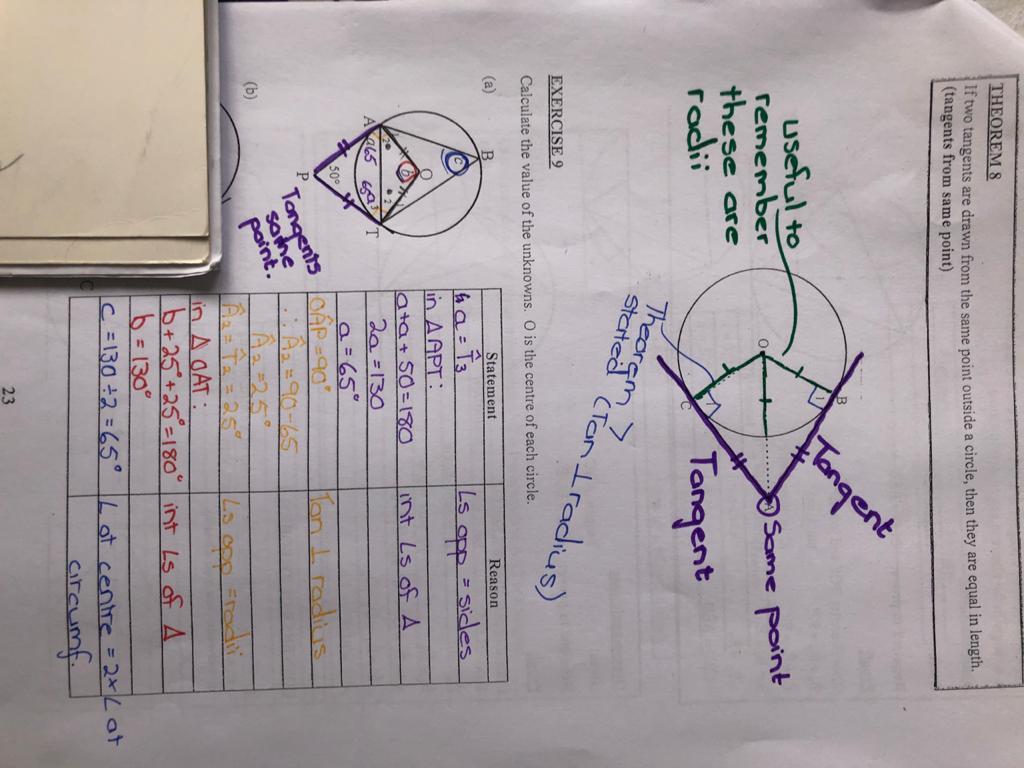 THEOREM 8
If two tangents are drawn from the same point outside a circle, then they are equal in length.
(tangents from same point)
useful to
remember
these are
radii
O
B
1
C
A
Tangent
Same point
Tangent
Theorem 7
stated
(Tan ⊥ radius)
EXERCISE 9
Calculate the value of the unknowns. O is the centre of each circle.
(a)
B
c
O
b
A
2
2
a 65
65 a
3
T
50°
P
Tangents
same
point.
(b)
Statement
Reason
a = T̂3
Ls opp = sides
in Δ APT:
a+a+50=180
int Ls of Δ
2a=130
a=65°
OÂP=90°
Tan ⊥ radius
∴ Â2=90-65
Â2=25°
Â2=T̂2=25°
Ls opp =radii
in Δ OAT:
b+25°+25°=180°
int Ls of Δ
b=130°
c=130÷2=65°
L at centre = 2×L at
circumf.
C
23